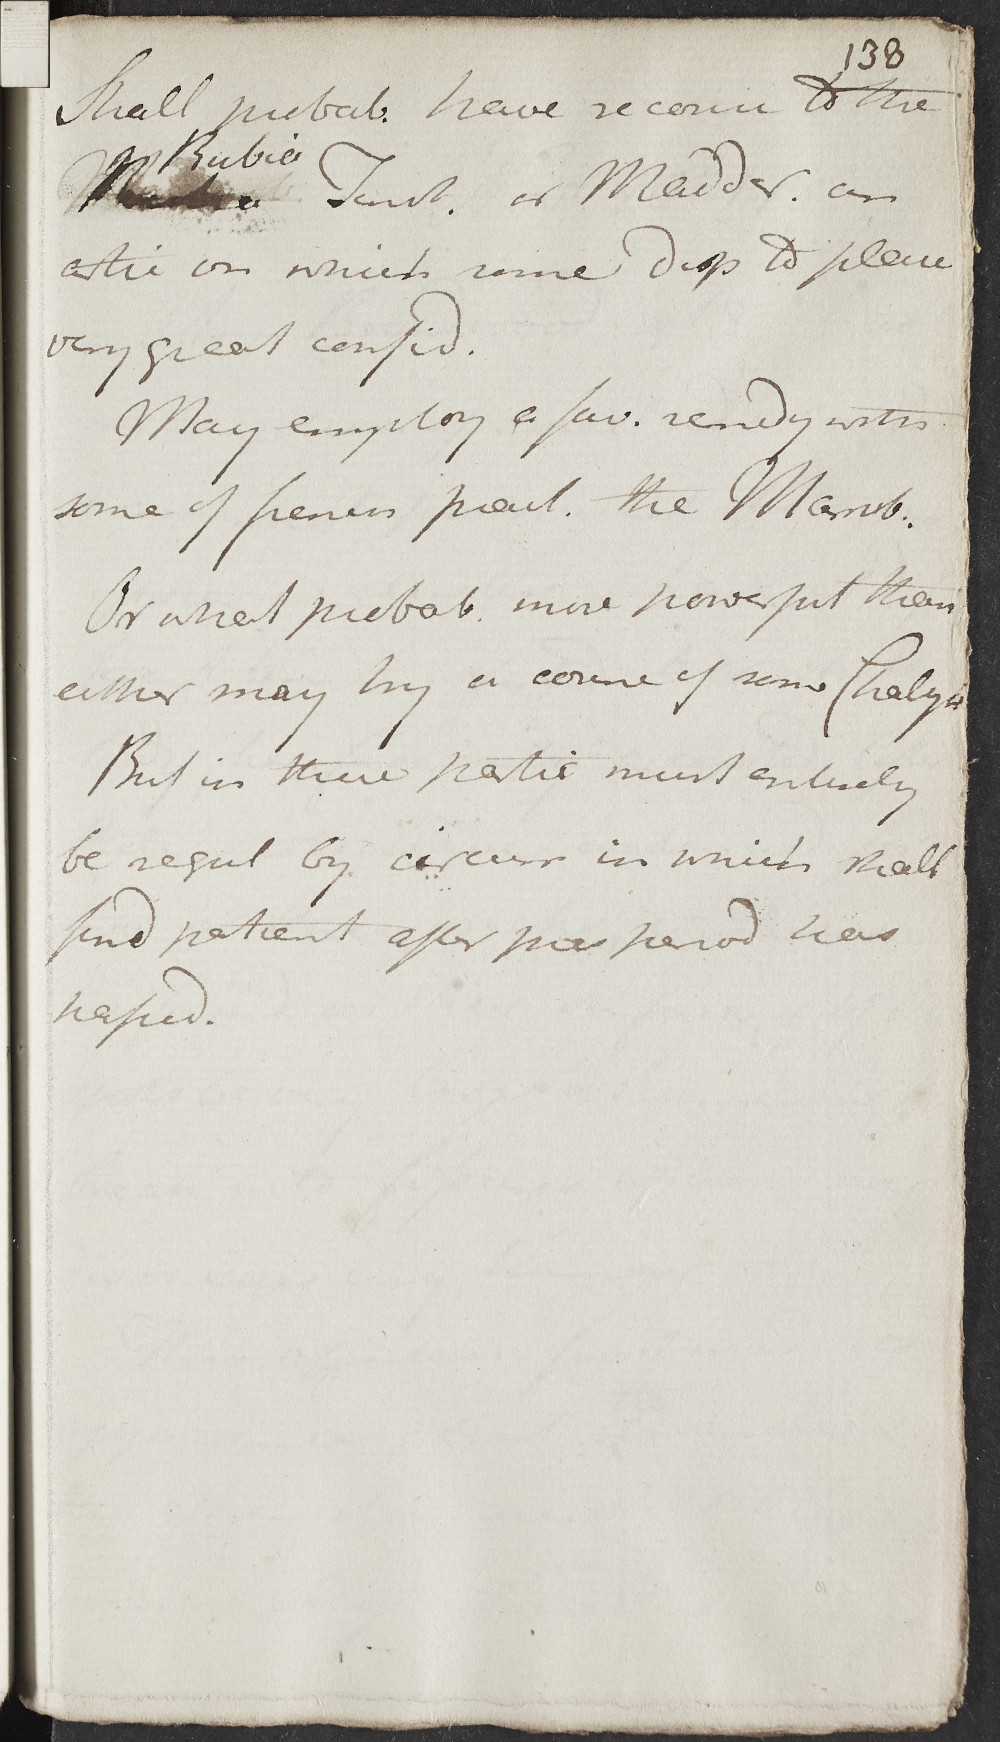 138
Shall probab. have recours to the
Rubia
Tinct. or Madder. an
artic on which some disp to place
very great confid.
May employ a fav. remdy with
some of females pract. the Mamb.
Or what probab. more powerful than
either may try a course of some Chalyb
But in these partic must entirely
be regul by circum in which shall
find patient after pres period has
passed.